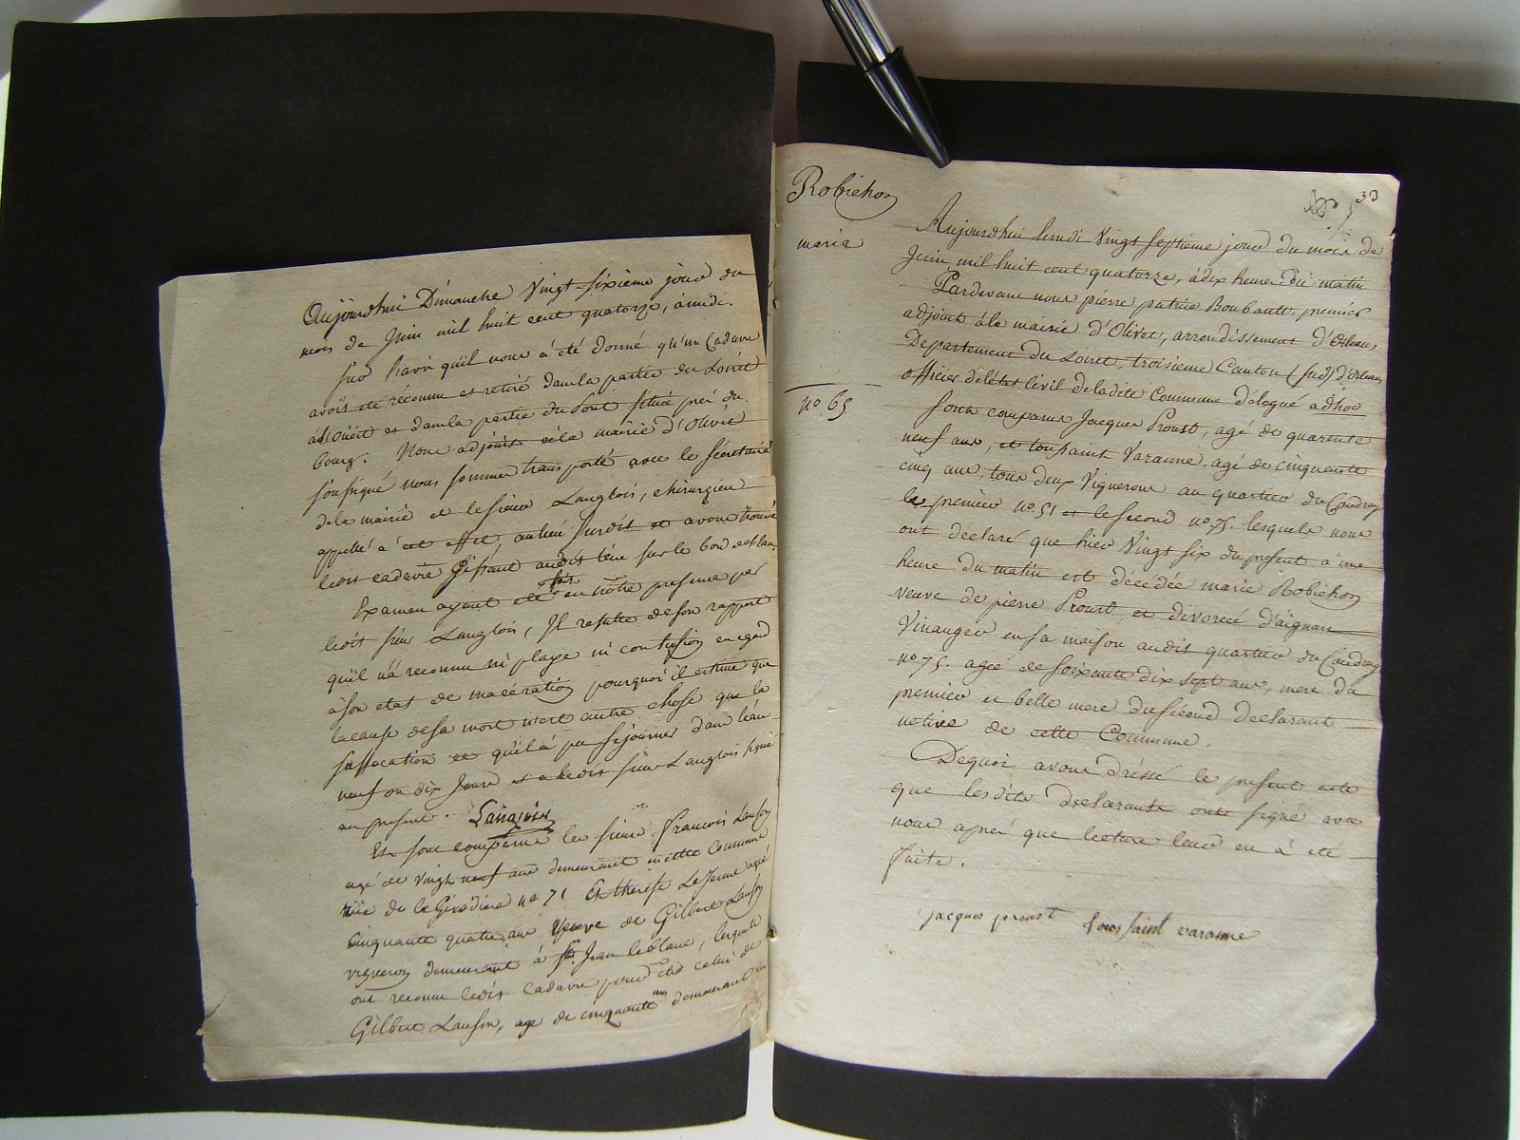 Aujourdhui Dimanche Vingt-sixième jour du
mois de Juin mil huit cent quatorze, à midi.
Sur l'avis qu'il nous à été donné qu'un Cadavre
avoit été réconnu et retiré dans la partie du Loiret
et dans la partie du Pont situé prés du
bourg. Nous adjoint à la mairie d'Olivet
soussigné nous sommes transporté avec le sécretaire
de la mairie et le sieur Langlois, chirurgien
appellé à cet effet, au lieu susdit et avons trouvé
ledit cadavre Gissant audit lieu sur le bord de l'eau,
Examen ayant été fait en nôtre presence par
ledit sieur Langlois, Il resulte de son rapport
qu'il n'a reconnu ni playe ni contusion en egard
à son etat de macération pourquoi il estime que
la cause de sa mort n'est autre chose que la
suffocation et qu'il à pu séjourner dans l'eau
neuf ou dix Jours et a ledit sieur Langlois signé
au present. Langlois
Et sont comparus les sieurs François Lanson
agé de vingt neuf ans demeurant en cette Commune
rüe de la Givodiere no 71 Et thérèse Le Jeune agée
cinquante quatre ans Veuve de Gilbert Lanson
vigneron demeurant à St. Jean le blanc, lesquels
ont reconnu ledit cadavre pour etre celui de
Gilbert Lanson, agé de cinquante ans demeurant
33
Robichon
marie
no 65
Aujourdhui lundi Vingt septième jour du mois de
Juin mil huit cent quatorze, à dix heures du matin
Pardevant nous pierre patrice Boubault premier
adjoint à la mairie d'Olivet, arrondissement d'Orleans,
Departement du Loiret, troisieme Canton (sud) d'Orleans
officier de l'état Civil de ladite Commune délégué adhoc
Sont comparus Jacques Proust, agé de quarante
neuf ans, et toussaint Varanne agé de cinquante
cinq ans, tous deux Vignerons au quartier du Coudray
le premier no. 51 et le second no. 75. lesquels nous
ont déclaré que hier Vingt six du present à une
heure du matin est décédée marie Robichon
veuve de pierre Proust, et divorcée d'aignan
Vinauger en sa maison audit quartier du Coudray
no 75. agée de soixante dix sept ans, mere du
premier et belle mere du sécond declarant
native de cette Commune.
Dequoi avons dréssé le present acte
que lesdits declarants ont signé avec
nous aprés que lecture leur en à été
faite.
jacques proust toussaint varanne